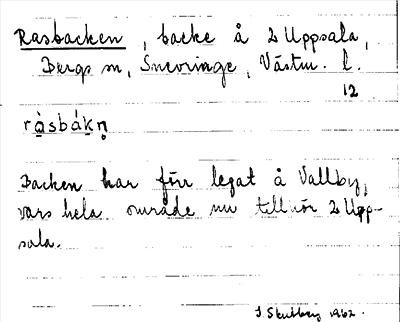 Rasbacken, backe å 2 Uppsala,
Bergs sn, Snevringe, Västm. l.
12
ràsbákn̥
Backen har förr legat å Vallby,
vars hela område nu tillhör 2 Upp-
sala.
J. Skutberg 1962.